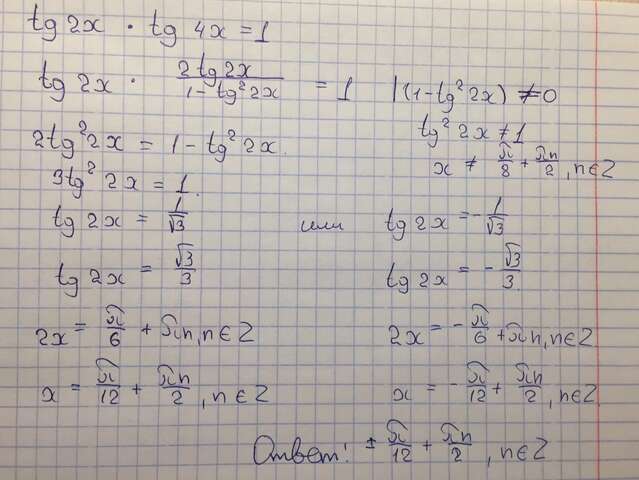 tg 2x · tg 4x = 1
tg 2x · 2tg2x/(1-tg²2x) = 1 | (1-tg²2x) ≠ 0
tg²2x ≠ 1
2tg²2x = 1 - tg²2x.
x ≠ π/8 + πn/2, n∈Z
3tg²2x = 1.
tg 2x = 1/√3 или tg 2x = -1/√3
tg 2x = √3/3 tg 2x = -√3/3.
2x = π/6 + πn, n∈Z 2x = -π/6 + πn, n∈Z
x = π/12 + πn/2, n∈Z x = -π/12 + πn/2, n∈Z
Ответ: ± π/12 + πn/2, n∈Z